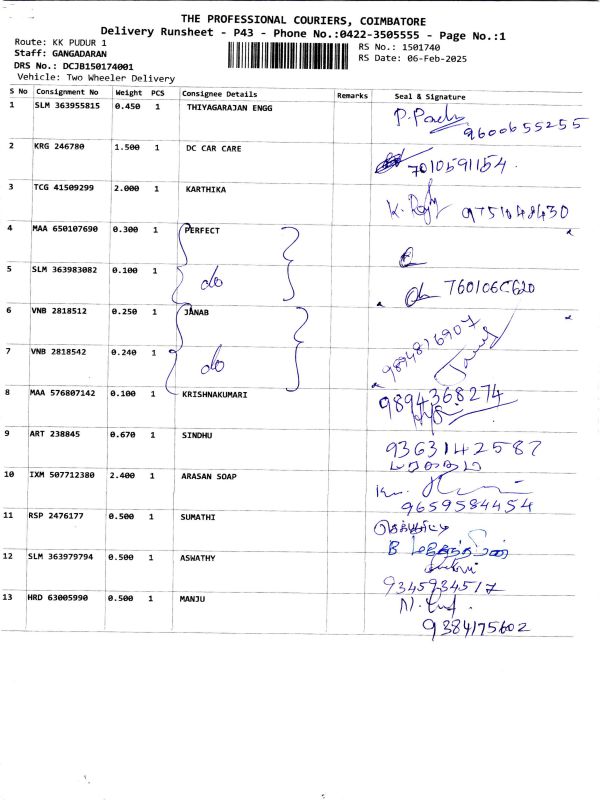 THE PROFESSIONAL COURIERS, COIMBATORE
Delivery Runsheet - P43 - Phone No.:0422-3505555 - Page No.:1
Route: KK PUDUR 1
RS No.: 1501740
Staff: GANGADARAN
RS Date: 06-Feb-2025
DRS No.: DCJB150174001
Vehicle: Two Wheeler Delivery
S No Consignment No Weight PCS Consignee Details Remarks Seal & Signature
1 SLM 363955815 0.450 1 THIYAGARAJAN ENGG
9600655255
2 KRG 246780 1.500 1 DC CAR CARE
7010591154
3 TCG 41509299 2.000 1 KARTHIKA
9751048430
4 MAA 650107690 0.300 1 PERFECT
5 SLM 363983082 0.100 1 do
6 VNB 2818512 0.250 1 JANAB
9894816907
7 VNB 2818542 0.240 1 do
8 MAA 576807142 0.100 1 KRISHNAKUMARI
9894368274
9 ART 238845 0.670 1 SINDHU
9363142587
10 IXM 507712380 2.400 1 ARASAN SOAP
9659584454
11 RSP 2476177 0.500 1 SUMATHI
12 SLM 363979794 0.500 1 ASWATHY
9345934517
13 HRD 63005990 0.500 1 MANJU
9384175602